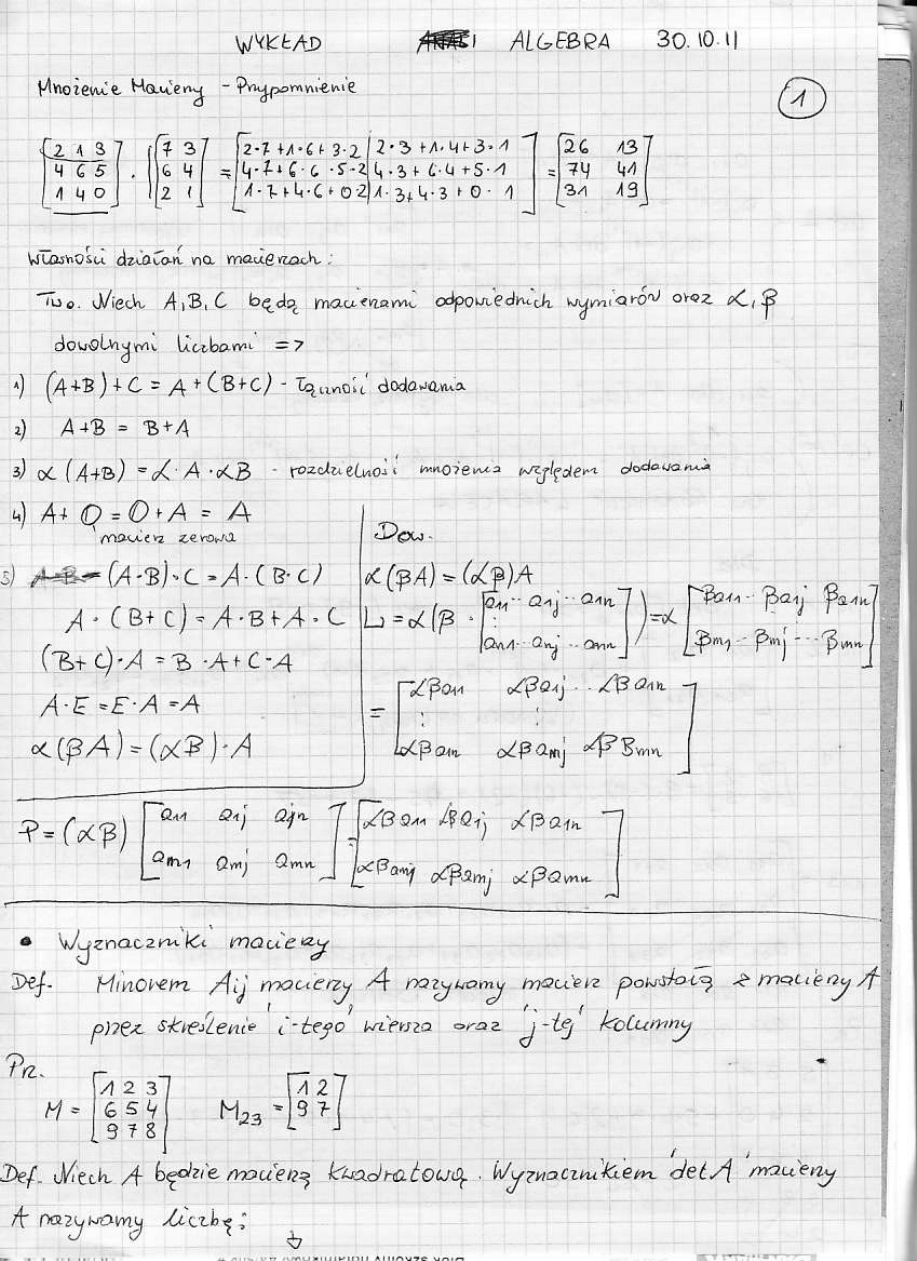 WYKŁAD ALGEBRA 30.10.11
Mnożenie Macierzy - Przypomnienie
1
[2 1 3] [7 3] [2·7+1·6+3·2 | 2·3+1·4+3·1] [26 13]
[4 6 5] · [6 4] = [4·7+6·6·5·2 | 4·3+6·4+5·1] = [74 41]
[1 4 0] [2 1] [1·7+4·6+0·2 | 1·3+4·3+0·1] [31 19]
Własności działań na macierzach:
Tw. Niech A, B, C będą macierzami odpowiednich wymiarów oraz α, β
dowolnymi liczbami =>
1) (A+B)+C = A+(B+C) - łączność dodawania
2) A+B = B+A
3) α(A+B) = α·A·αB - rozdzielność mnożenia względem dodawania
4) A+O = O+A = A
macierz zerowa
5) (A·B)·C = A·(B·C)
A·(B+C) = A·B+A·C
(B+C)·A = B·A+C·A
A·E = E·A = A
α(βA) = (αβ)·A
Dow.
α(βA) = (αβ)A
L = α(β · [a11 ·· a1j ·· a1n] ) = α [βa11 ·· βa1j βa1n]
[an1 ·· anj ·· ann] [βm1 ·· βmj ··· βmn]
= [αβa11 αβa1j ·· αβa1n]
[αβa1n αβamj αβBmn]
P = (αβ) [a11 a1j ajn] = [αβa11 αβa1j αβa1n]
[am1 amj amn] [αβamj αβamj αβamn]
• Wyznaczniki macierzy
Def. Minorem Aij macierzy A nazywamy macierz powstałą z macierzy A
przez skreślenie 'i-tego' wiersza oraz 'j-tej' kolumny
Prz.
M = [1 2 3] M23 = [1 2]
[6 5 4] [9 7]
[9 7 8]
Def. Niech A będzie macierzą kwadratową. Wyznacznikiem 'det A' macierzy
A nazywamy liczbę: